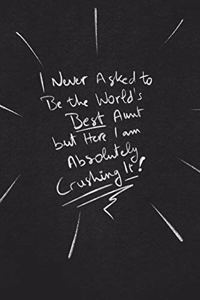 I Never Asked to
Be the World's
Best Aunt
but Here I am
Absolutely
Crushing It!